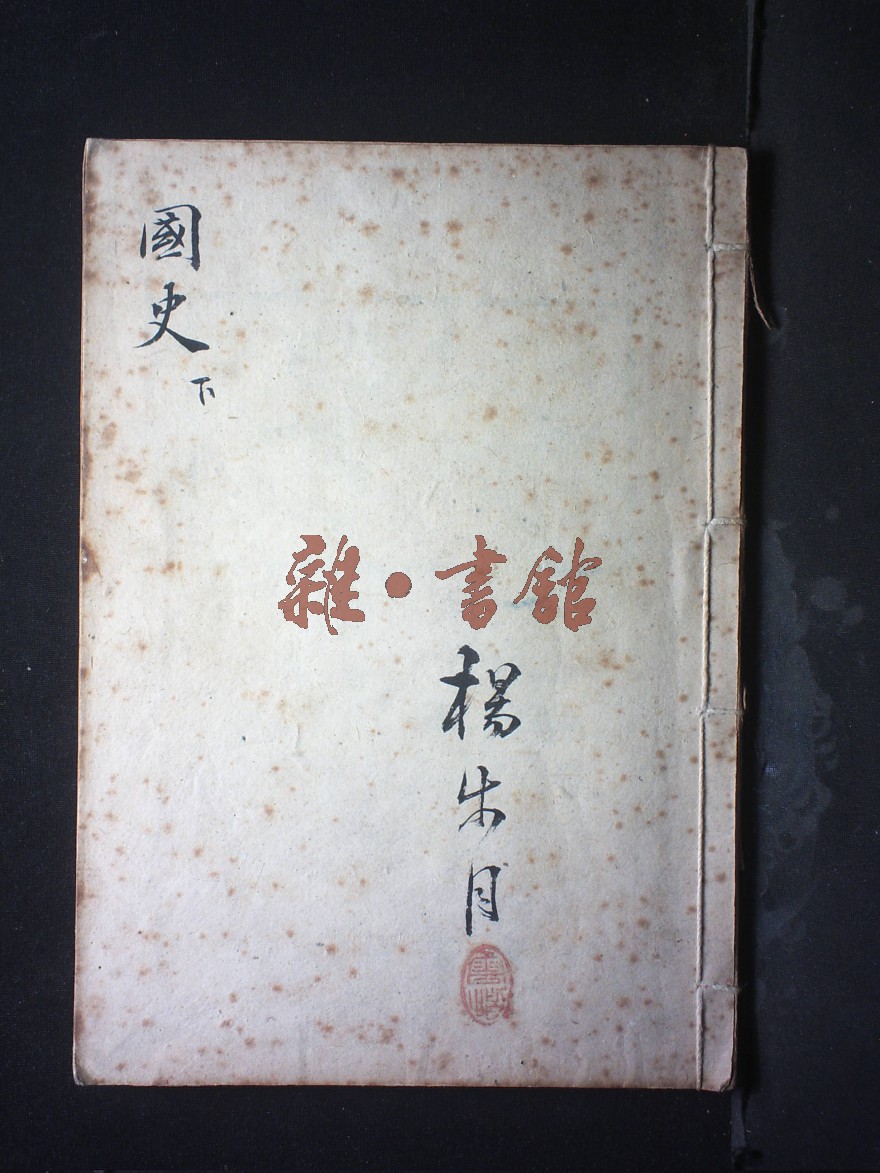 國史
下
雜·書館
楊朱月